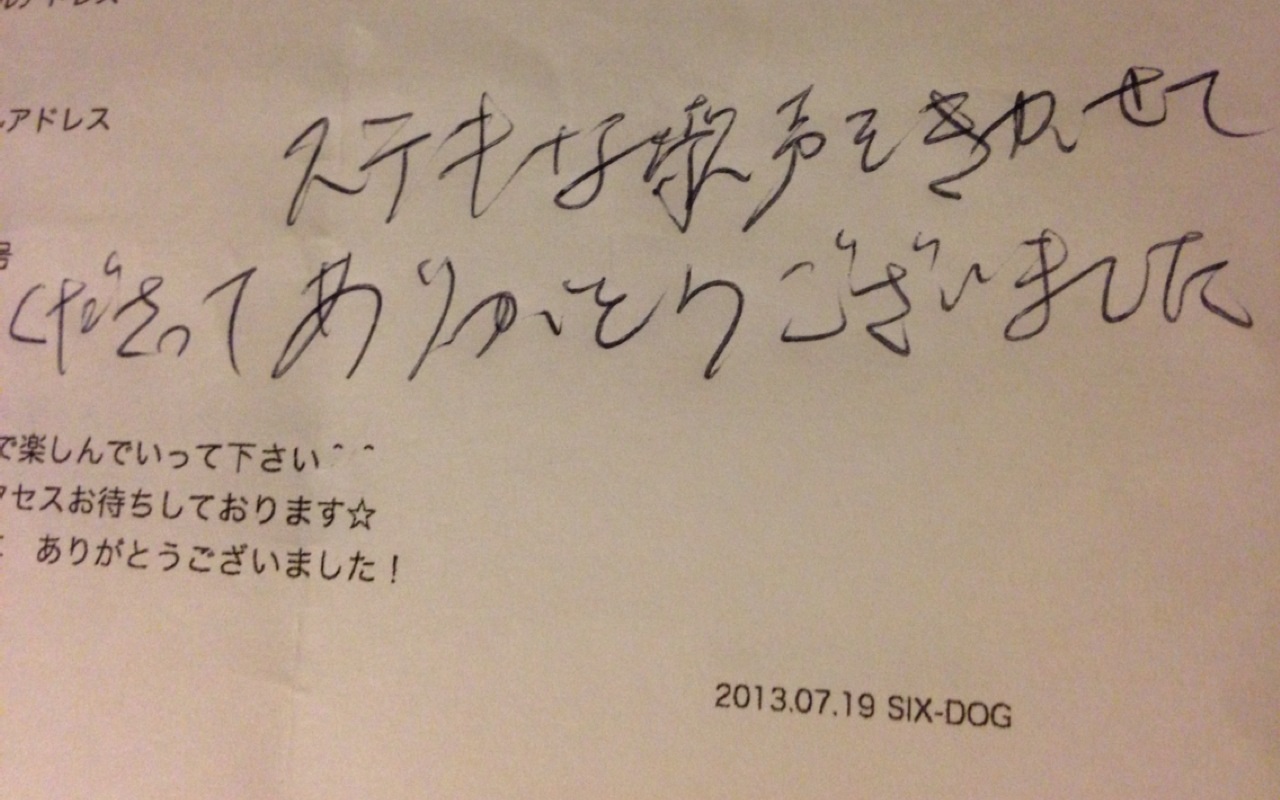 ルアドレス
ルアドレス
ステキな歌声をきかせて
号
くださってありがとうございました
で楽しんでいって下さい＾＾
アセスお待ちしております☆
ありがとうございました！
2013.07.19 SIX-DOG